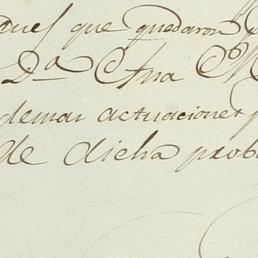 que quedaron
D.ª Ana M
demas actuaciones p
de dicha prob